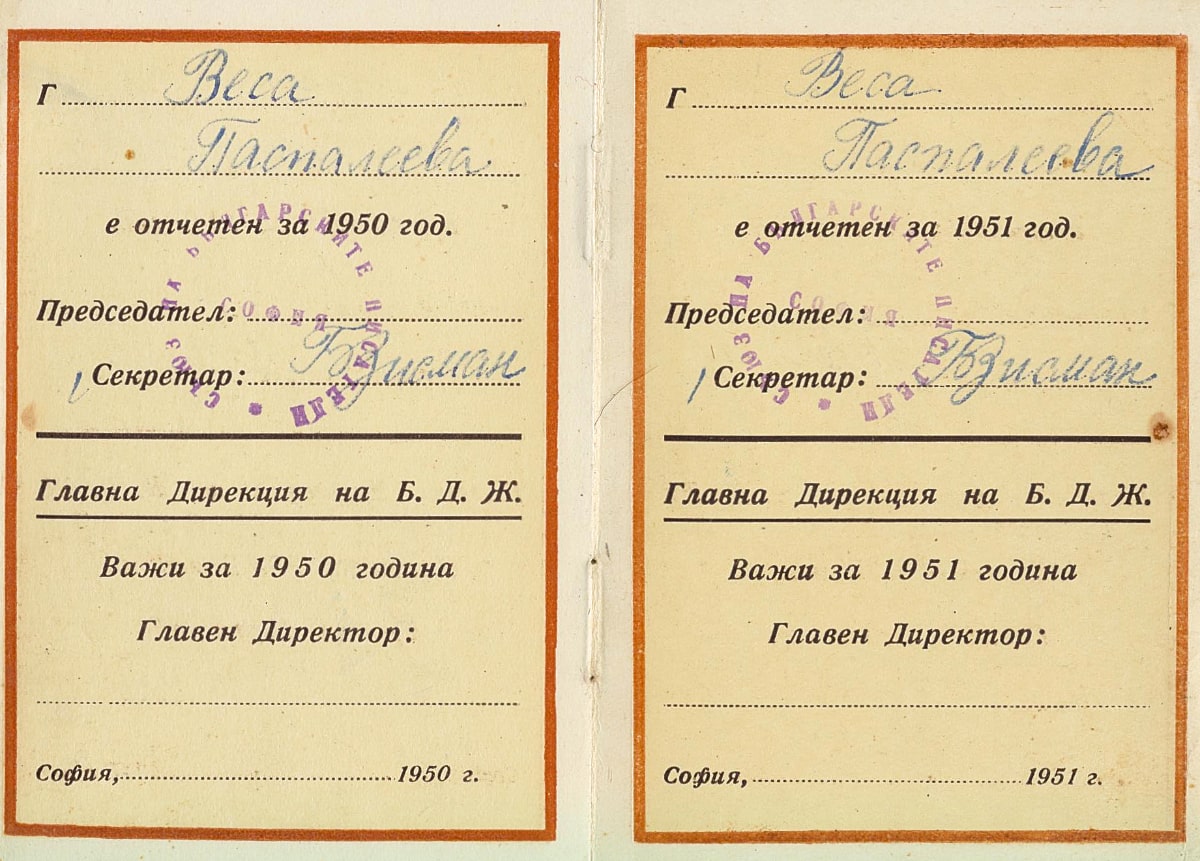 Г Веса
Паспалеева
е отчетен за 1950 год.
Председател:
Секретар:
СЪЮЗ НА БЪЛГАРСКИТЕ ПИСАТЕЛИ
СОФИЯ
Главна Дирекция на Б. Д. Ж.
Важи за 1950 година
Главен Директор:
София, 1950 г.
Г Веса
Паспалеева
е отчетен за 1951 год.
Председател:
Секретар:
СЪЮЗ НА БЪЛГАРСКИТЕ ПИСАТЕЛИ
СОФИЯ
Главна Дирекция на Б. Д. Ж.
Важи за 1951 година
Главен Директор:
София, 1951 г.